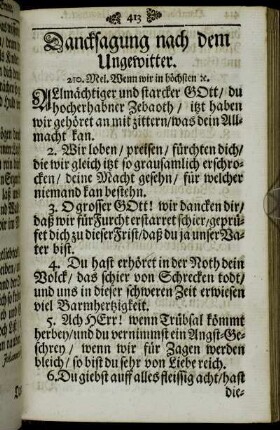 413
Dancksagung nach dem
Ungewitter.
210. Mel. Wenn wir in höchsten ꝛc.
Allmächtiger und starcker GOtt / du
hocherhabner Zebaoth / itzt haben
wir gehöret an mit zittern / was dein All-
macht kan.
2. Wir loben / preisen / fürchten dich /
die wir gleich itzt so grausamlich erschro-
cken / deine Macht gesehn / für welcher
niemand kan bestehn.
3. O grosser GOtt! wir dancken dir /
daß wir für Furcht erstarret schier / geprü-
fet dich zu dieser Frist / daß du ja unser Va-
ter bist.
4. Du hast erhöret in der Noth dein
Volck / das schier von Schrecken todt /
und uns in dieser schweren Zeit erwiesen
viel Barmhertzigkeit.
5. Ach HErr! wenn Trübsal kömmt
herbey / und du vernimmst ein Angst-Ge-
schrey / wenn wir für Zagen werden
bleich / so bist du sehr von Liebe reich.
6. Du giebst auff alles fleissig acht / hast
die-